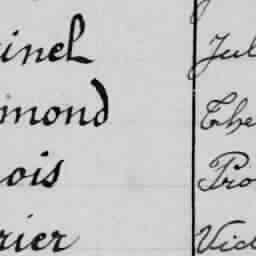 inel Jul
mond The
ois Pro
rier Vict